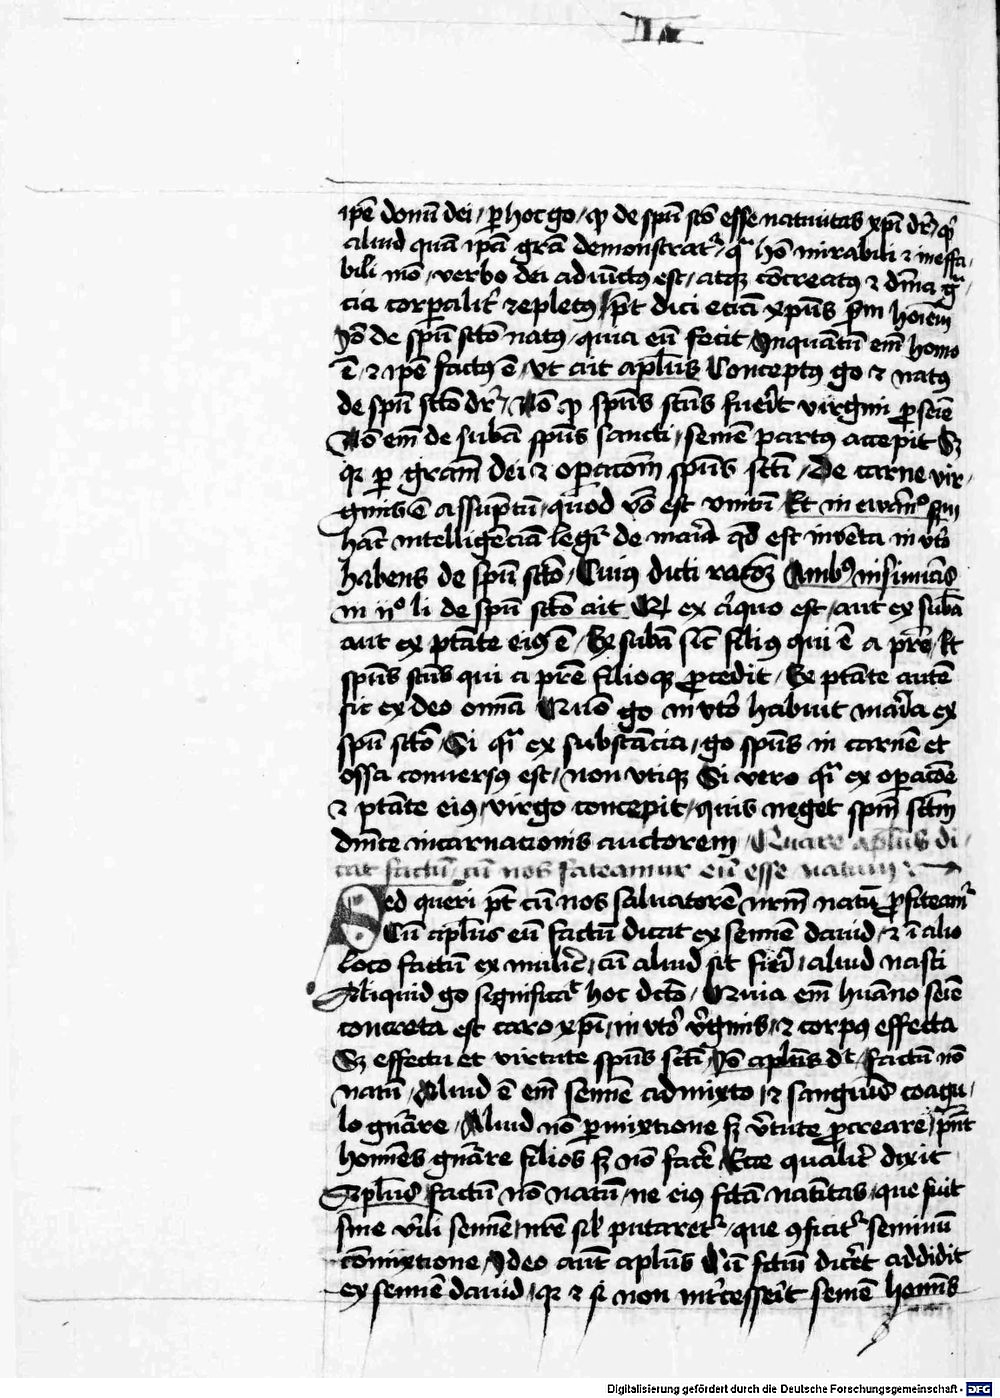 ip̄e donū dei / ꝑ hoc gͦ / ꝙ de sp̄u sc̄o esse natiuitas xp̄i dr̄ / qͥ
aliud quā ip̄ā gr̄ā demonstrat᷑ / qͣ hō mirabili ⁊ ineffa
bili mō / verbo dei adiūctꝰ est / atqꝫ cōcreatꝰ ⁊ dīna gͣ
cia corꝑalit̓ repletꝰ / p̄t dici eciā xp̄us ẜm hoīem
Jō de sp̄u sc̄tō natꝰ / quia eū fecit / Jnquātū em̄ homo
ē / ⁊ ip̄e factꝰ ē / vt ait apl̄us Conceptꝰ gͦ ⁊ natꝰ
de sp̄u sc̄tō dr̄ / Nō ꝙ sp̄us sc̄us fuerīt virgini ꝓ seīe
Nō em̄ de subā sp̄us sancti / semē partꝰ accepit Sꝫ
qꝛ ꝑ grām dei ⁊ oꝑacōm sp̄us sc̄ti / De carne vir
ginis ē assūptū / quod v̓bo est vnitū Et in ewāḡᵒ ẜm
hāc intelligēciā legit᷑ de mar̄ia qd̓ est inuēta in vt̓o
habens de sp̄u sc̄tō / Cuiꝰ dicti racōꝫ Ambꝰ insinuās
in ijᵒ li de sp̄u sc̄tō ait Qd̓ ex aliquo est / aut ex subā
aut ex p̄tāte eiꝰ ē / Ex subā sic̄ filiꝰ qui ē a pr̄e / Et
sp̄us sc̄us qui a pr̄e filioqꝫ ꝓcedit / Ex p̄tāte autē
sic ex deo om̄ia Quō gͦ in vt̓o habuit mar̄ia ex
sp̄u sc̄tō / Si qͥ ex substācia / gͦ sp̄us in carnē et
ossa conuersꝰ est / non vtiqꝫ Si vero qͥ ex oꝑacōe
⁊ p̄tāte eiꝰ / virgo concepit / quis neget sp̄m sc̄tm
dn̄ice incarnacionis auctorem / Quare apl̄us di
cat factū / cū nos fateamur eū esse natum
Sed queri p̄t cū nos saluatorē nr̄m natū ꝓfiteam᷑
Cū apl̄us eū factū dicat ex semīe dauid / ⁊ ī alio
loco factū ex muliē / cū aliud sit fierī / aliud nasci
Aliquid gͦ significat᷑ hoc dc̄o / Quia em̄ huāno seīe
concreta est caro xp̄i / in vt̓o v̓ginis / ⁊ corpꝰ effecta
Sꝫ effectu et virtute sp̄us sc̄ti Jō apl̄us dt̓ / factū nō
natū / Aliud ē em̄ semīe admixto / ⁊ sanguīs coagu
lo gn̄are / Aliud nō ꝑmixtione sꝫ v̓tute ꝓcreare / p̄nt
homīes gn̄are filios sꝫ nō facē Ecce qualit̓ dixit
Apl̄us factū nō natū / ne eiꝰ sc̄ā natīitas / que fuit
sine v̓ili semīe / nr̄e sil̓ putaret᷑ / que ꝯficit᷑ seminū
cōmixtione / Jdeo aūt apl̄us Cū fc̄ū dicet addidit
ex semīe dauid / qꝛ ⁊ si non int̓cesserīt semē homīs
Digitalisierung gefördert durch die Deutsche Forschungsgemeinschaft - DFG